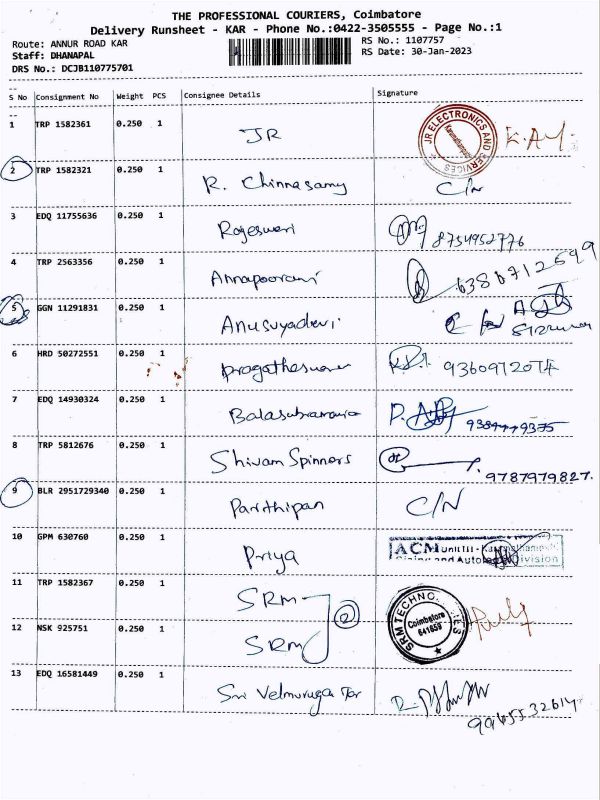 THE PROFESSIONAL COURIERS, Coimbatore
Delivery Runsheet - KAR - Phone No.:0422-3505555 - Page No.:1
Route: ANNUR ROAD KAR
RS No.: 1107757
Staff: DHANAPAL
RS Date: 30-Jan-2023
DRS No.: DCJB110775701
S No Consignment No Weight PCS Consignee Details Signature
1 TRP 1582361 0.250 1 JR JR ELECTRONICS AND SERVICES
2 TRP 1582321 0.250 1 R. Chinnasamy C/N
3 EDQ 11755636 0.250 1 Rajeswari 8754952776
4 TRP 2563356 0.250 1 Annapoorani 6380712699
5 GGN 11291831 0.250 1 Anusuyadevi
6 HRD 50272551 0.250 1 Pragatheswaran 9360972074
7 EDQ 14930324 0.250 1 Balasubramania
8 TRP 5812676 0.250 1 Shivam Spinners 9787979827.
9 BLR 2951729340 0.250 1 Parthipan C/N
10 GPM 630760 0.250 1 Priya ACM Unit III -
Division
11 TRP 1582367 0.250 1 SRM 2 SRM TECHNOLOGIES Coimbatore 641659
12 NSK 925751 0.250 1 SRM
13 EDQ 16581449 0.250 1 Sri Velmuruga Tar